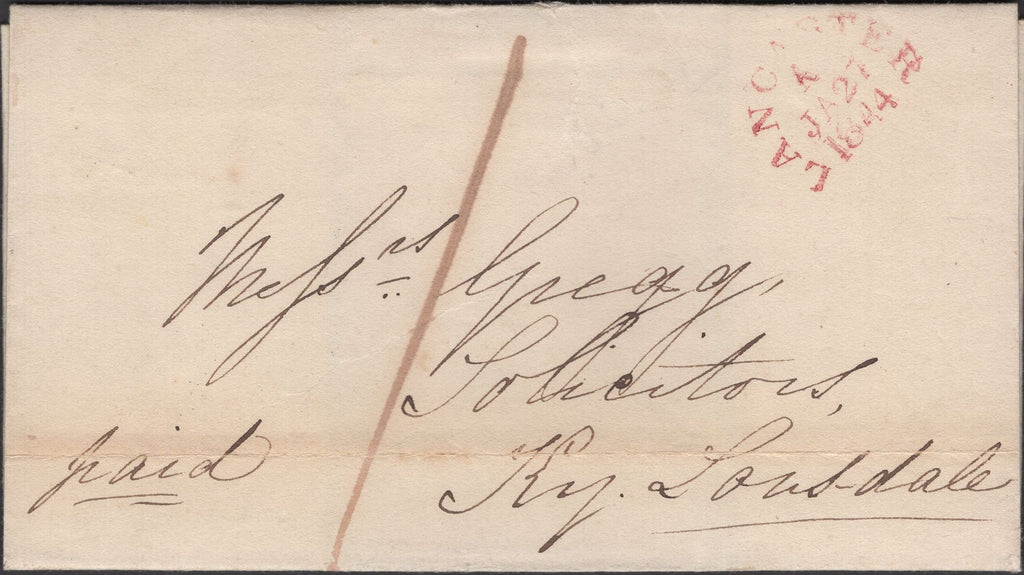 LANCASTER
A
JA 27
1844
Messrs Gregg,
Solicitors,
Ky. Lonsdale
paid